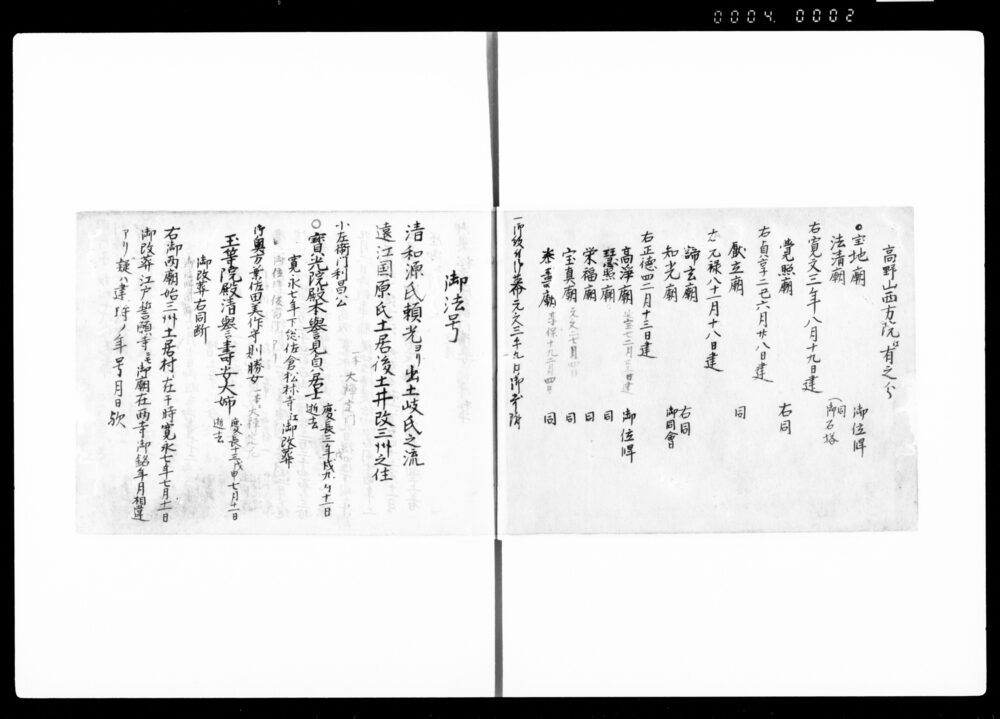 0004 0002
高野山西方院ニ有之分
○宝地廟 御位牌
法清廟 同 御石塔
右寛文三年八月十九日建
覚照廟 右同
右貞享二乙六月廿八日建
厳立廟 同
右元禄八十一月十八日建
諦玄廟 右同
知光廟 御同會
右正徳四二月十三日建
高淨廟 御位牌
慧照廟 同
栄福廟 同
宝真廟 同
泰壽廟 享保十九二月四日 同
御法号
清和源氏頼光ヨリ出土岐氏之流
遠江国原氏土居後土井改三州之住
小左衛門利昌公
○寳光院殿本誉見貞居士 慶長三年戌九月十一日逝去
寛永七年下総佐倉松林寺江御改葬
御奥方葉佐田美作守則勝女
玉等院殿清誉壽安大姉 慶長十三戊申七月十一日逝去
御改葬右同断
右御両廟始三州土居村ニ在干時寛永七年七月十一日
御改葬江戸誓願寺ニモ御廟在両寺御銘年月相違
アリ疑ハ建ル時ノ年号月日欤